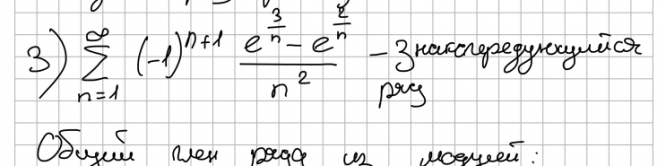 3) ∑_{n=1}^{∞} (-1)^{n+1} \frac{e^{\frac{3}{n}} - e^{\frac{2}{n}}}{n^2} - Знакочередующийся
ряд
Общий член ряда из модулей: